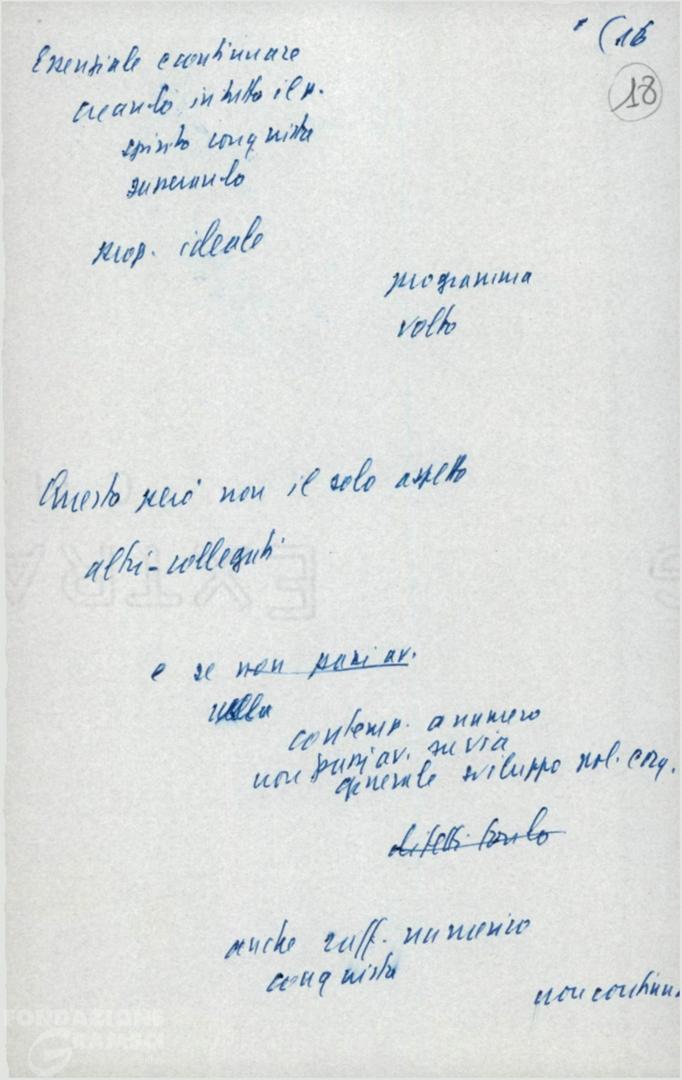 (16
18
Essenziale continuare
creando in tutto il p.
spirito conquista
superando
prop. ideale
programma
volto
Questo però non il solo aspetto
altri - collegati
e se non passi av.
nella
contemp. a numero
non passi av. su via
generale sviluppo pol. cong.
difetti
anche raff. numerico
conquista
non continu.
FONDAZIONE
GRAMSCI
EXTRA